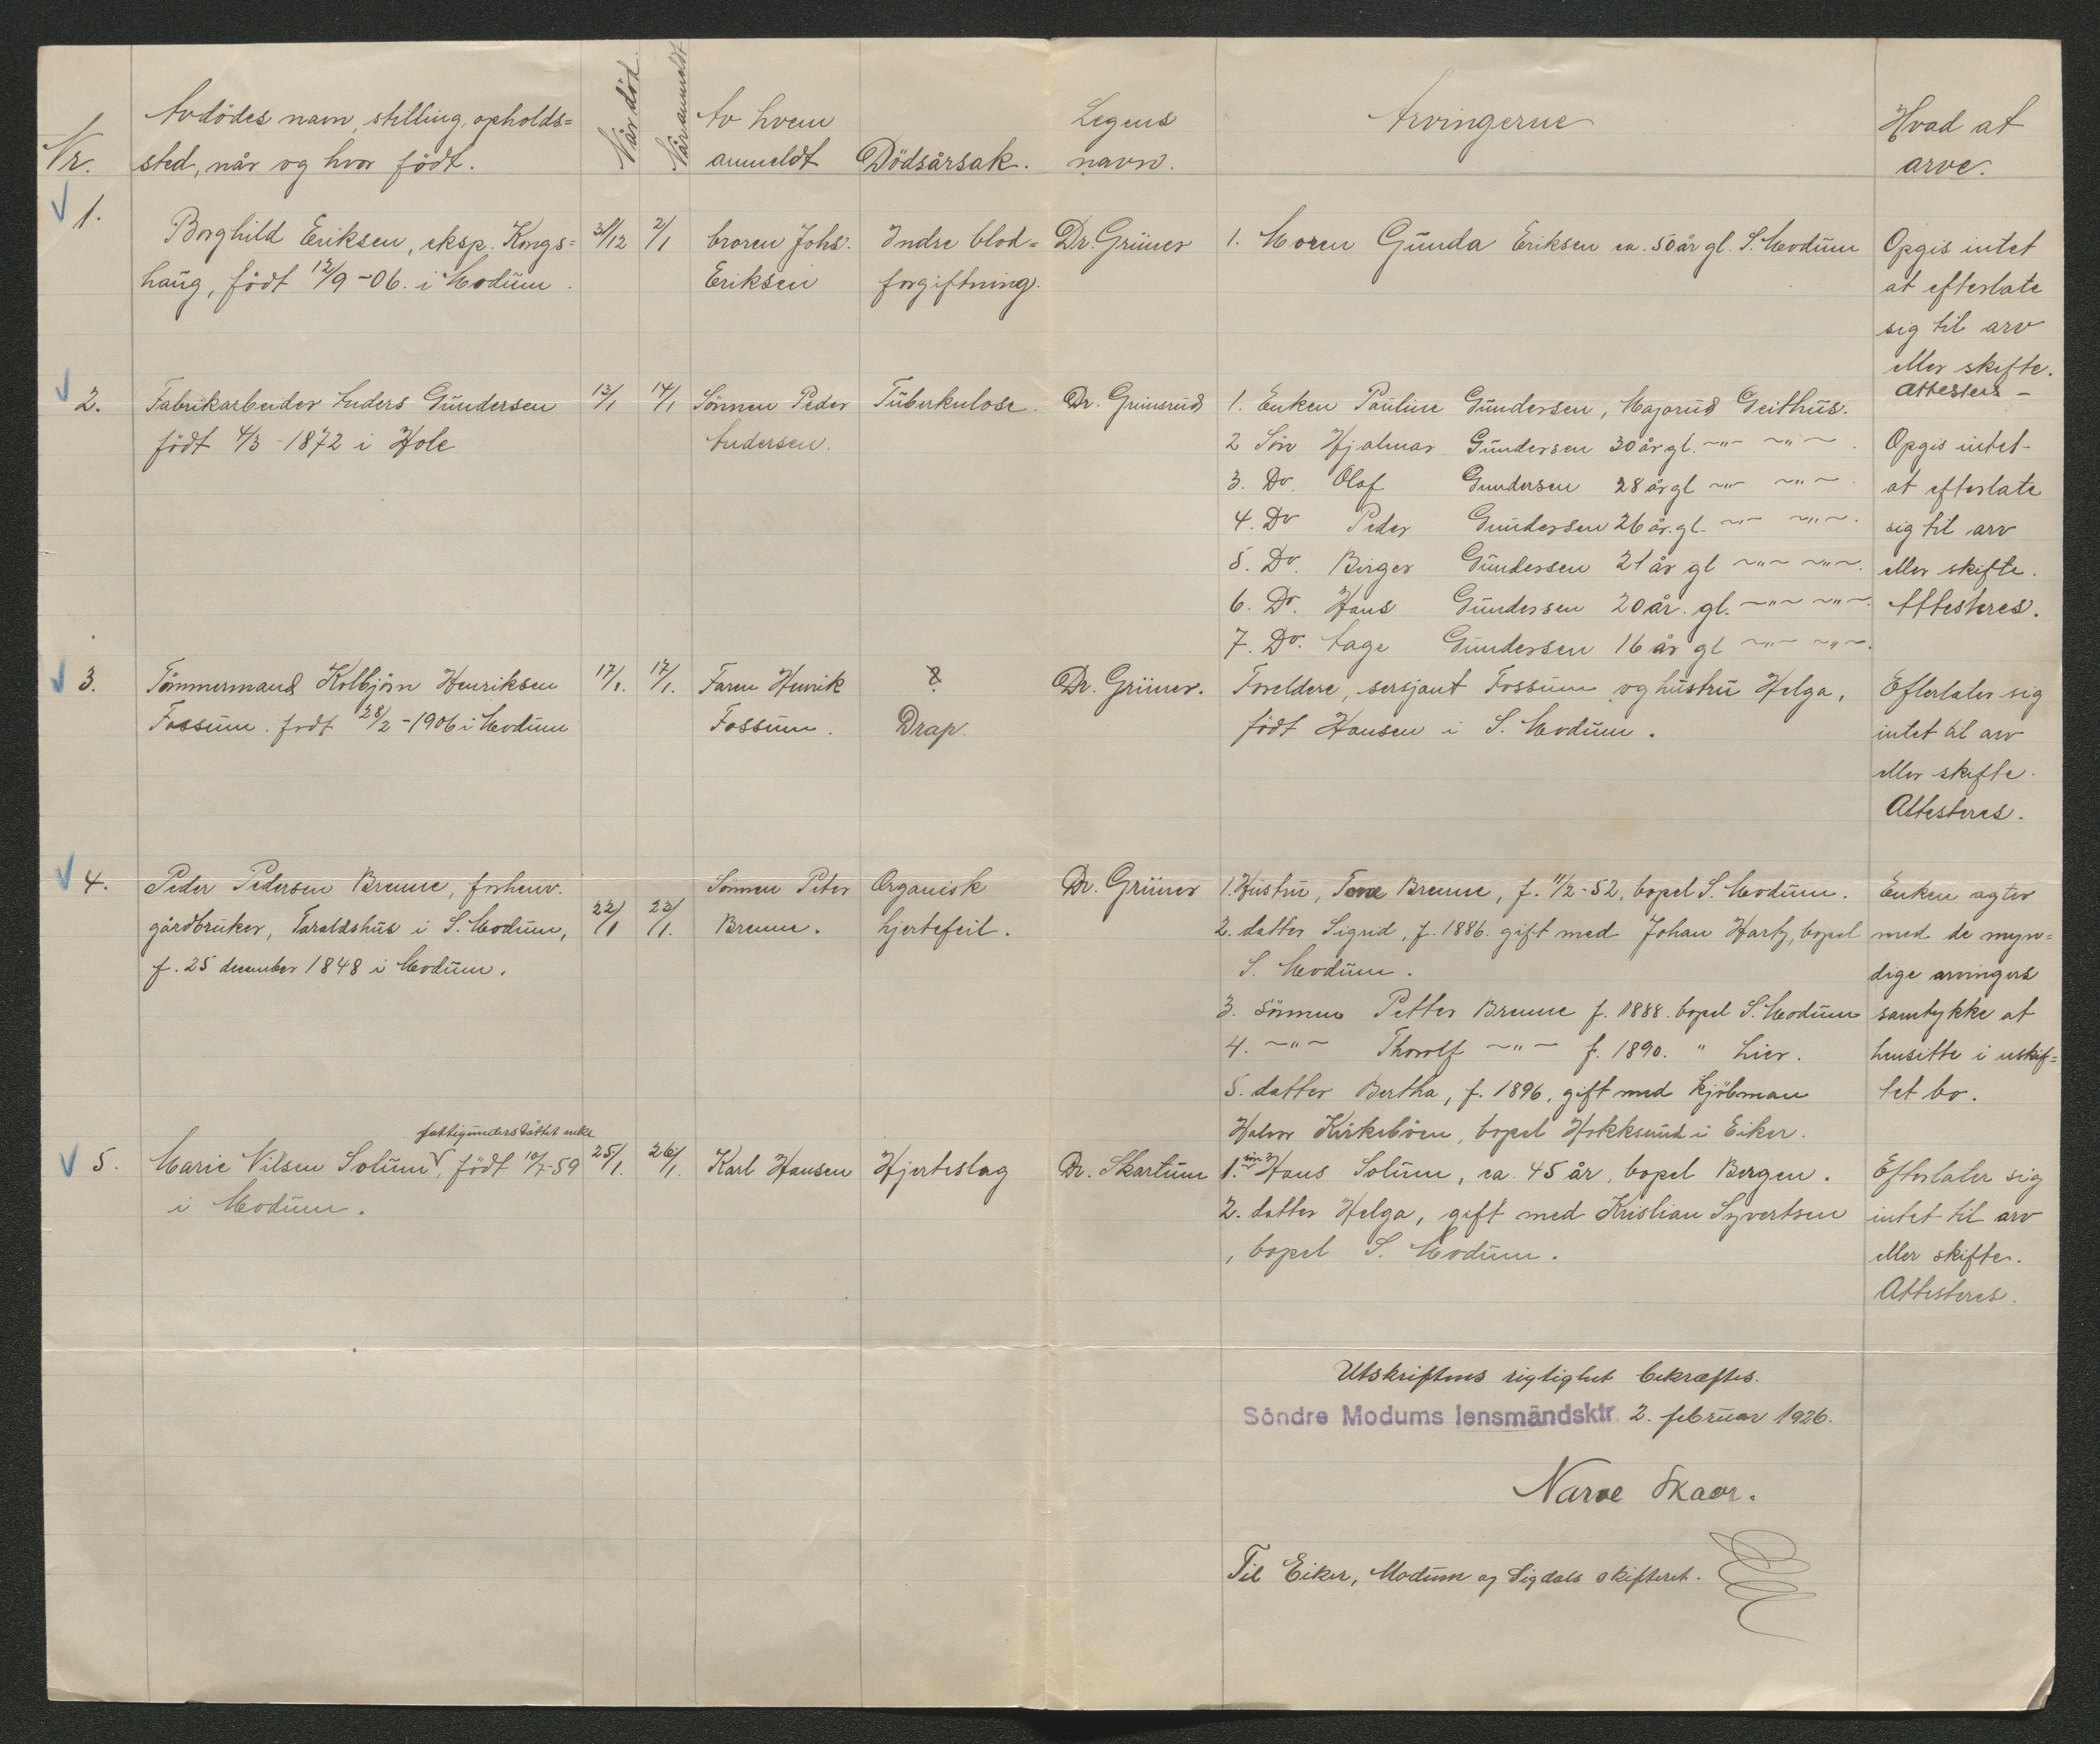 Nr.
Avdödes navn, stilling, opholds=
sted, når og hvor födt.
Når död.
Når anmeldt
Av hvem
anmeldt
Dödsårsak.
Legens
navn.
Arvingerne
Hvad at
arve.
1.
Borghild Eriksen, eksp. Kongs=
haug, födt 12/9-06. i Modum.
31/12
2/1
broren Johs.
Eriksen
Indre blod=
forgiftning.
Dr. Grüner
1. Moren Gunda Eriksen ca. 50 år gl. S. Modum
Opgis intet
at efterlate
sig til arv
eller skifte.
Attesteres -
2.
Fabrikarbeider Anders Gundersen
födt 4/3-1872 i Hole
13/1
14/1
Sönnen Peder
Andersen.
Tuberkulose.
Dr. Grimsrud
1. Enken Pauline Gundersen, Majorud Geithus.
2 Sön Hjalmar Gundersen 30 år gl. -"- -"-.
3. Do. Olaf Gundersen 28 år gl -"- -"-.
4. Do Peder Gundersen 26 år. gl. -"- -"-.
5. Do. Birger Gundersen 21 år gl -"- -"-.
6. Do. Hans Gundersen 20 år. gl. -"- -"-.
7. Do. Aage Gundersen 16 år gl -"- -"-.
Opgis intet-
at efterlate
sig til arv
eller skifte.
Attesteres.
3.
Tömmermand Kolbjörn Henriksen
Fossum. födt 28/2-1906 i Modum
17/1.
17/1.
Faren Henrik
Fossum.
?
Drap.
Dr. Grüner.
Foreldere, sersjant Fossum og hustru Helga,
födt Hansen i S. Modum.
Efterlater sig
intet til arv
eller skifte.
Attesteres.
4.
Peder Pedersen Brenne, forhenv.
gårdbruker, Taraldshus i S. Modum,
f. 25 december 1848 i Modum.
22/1
23/1.
Sönnen Peter
Brenne.
Organisk
hjertefeil.
Dr. Grüner
1. Hustru, Tone Brenne, f. 11/2-52, bopel S. Modum.
2. datter Sigrid, f. 1886. gift med Johan Hartz, bopel
S. Modum.
3. Sönnen Petter Brenne f. 1888. bopel S. Modum
4. -"- Thorolf -"- f. 1890. " Lier.
5. datter Bertha, f. 1896, gift med kjöbman
Halvor Kirkeböen, bopel Hokksund i Eiker.
Enken agter
med de myn=
dige arvingers
samtykke at
hensitte i uskif=
tet bo.
5.
fattigunderstöttet enke
Marie Nilsen Solum, födt 10/7-59
i Modum.
25/1.
26/1.
Karl Hansen
Hjerteslag
Dr. Skartum
1. sön Hans Solum, ca. 45 år, bopel Bergen.
2. datter Helga, gift med Kristian Syvertsen
, bopel S. Modum.
Efterlater sig
intet til arv
eller skifte.
Attesteres.
Utskriftens rigtighet bekræftes.
Söndre Modums lensmändsktr. 2. februar 1926.
Narve Skaar.
Til Eiker, Modum og Sigdals skifteret.